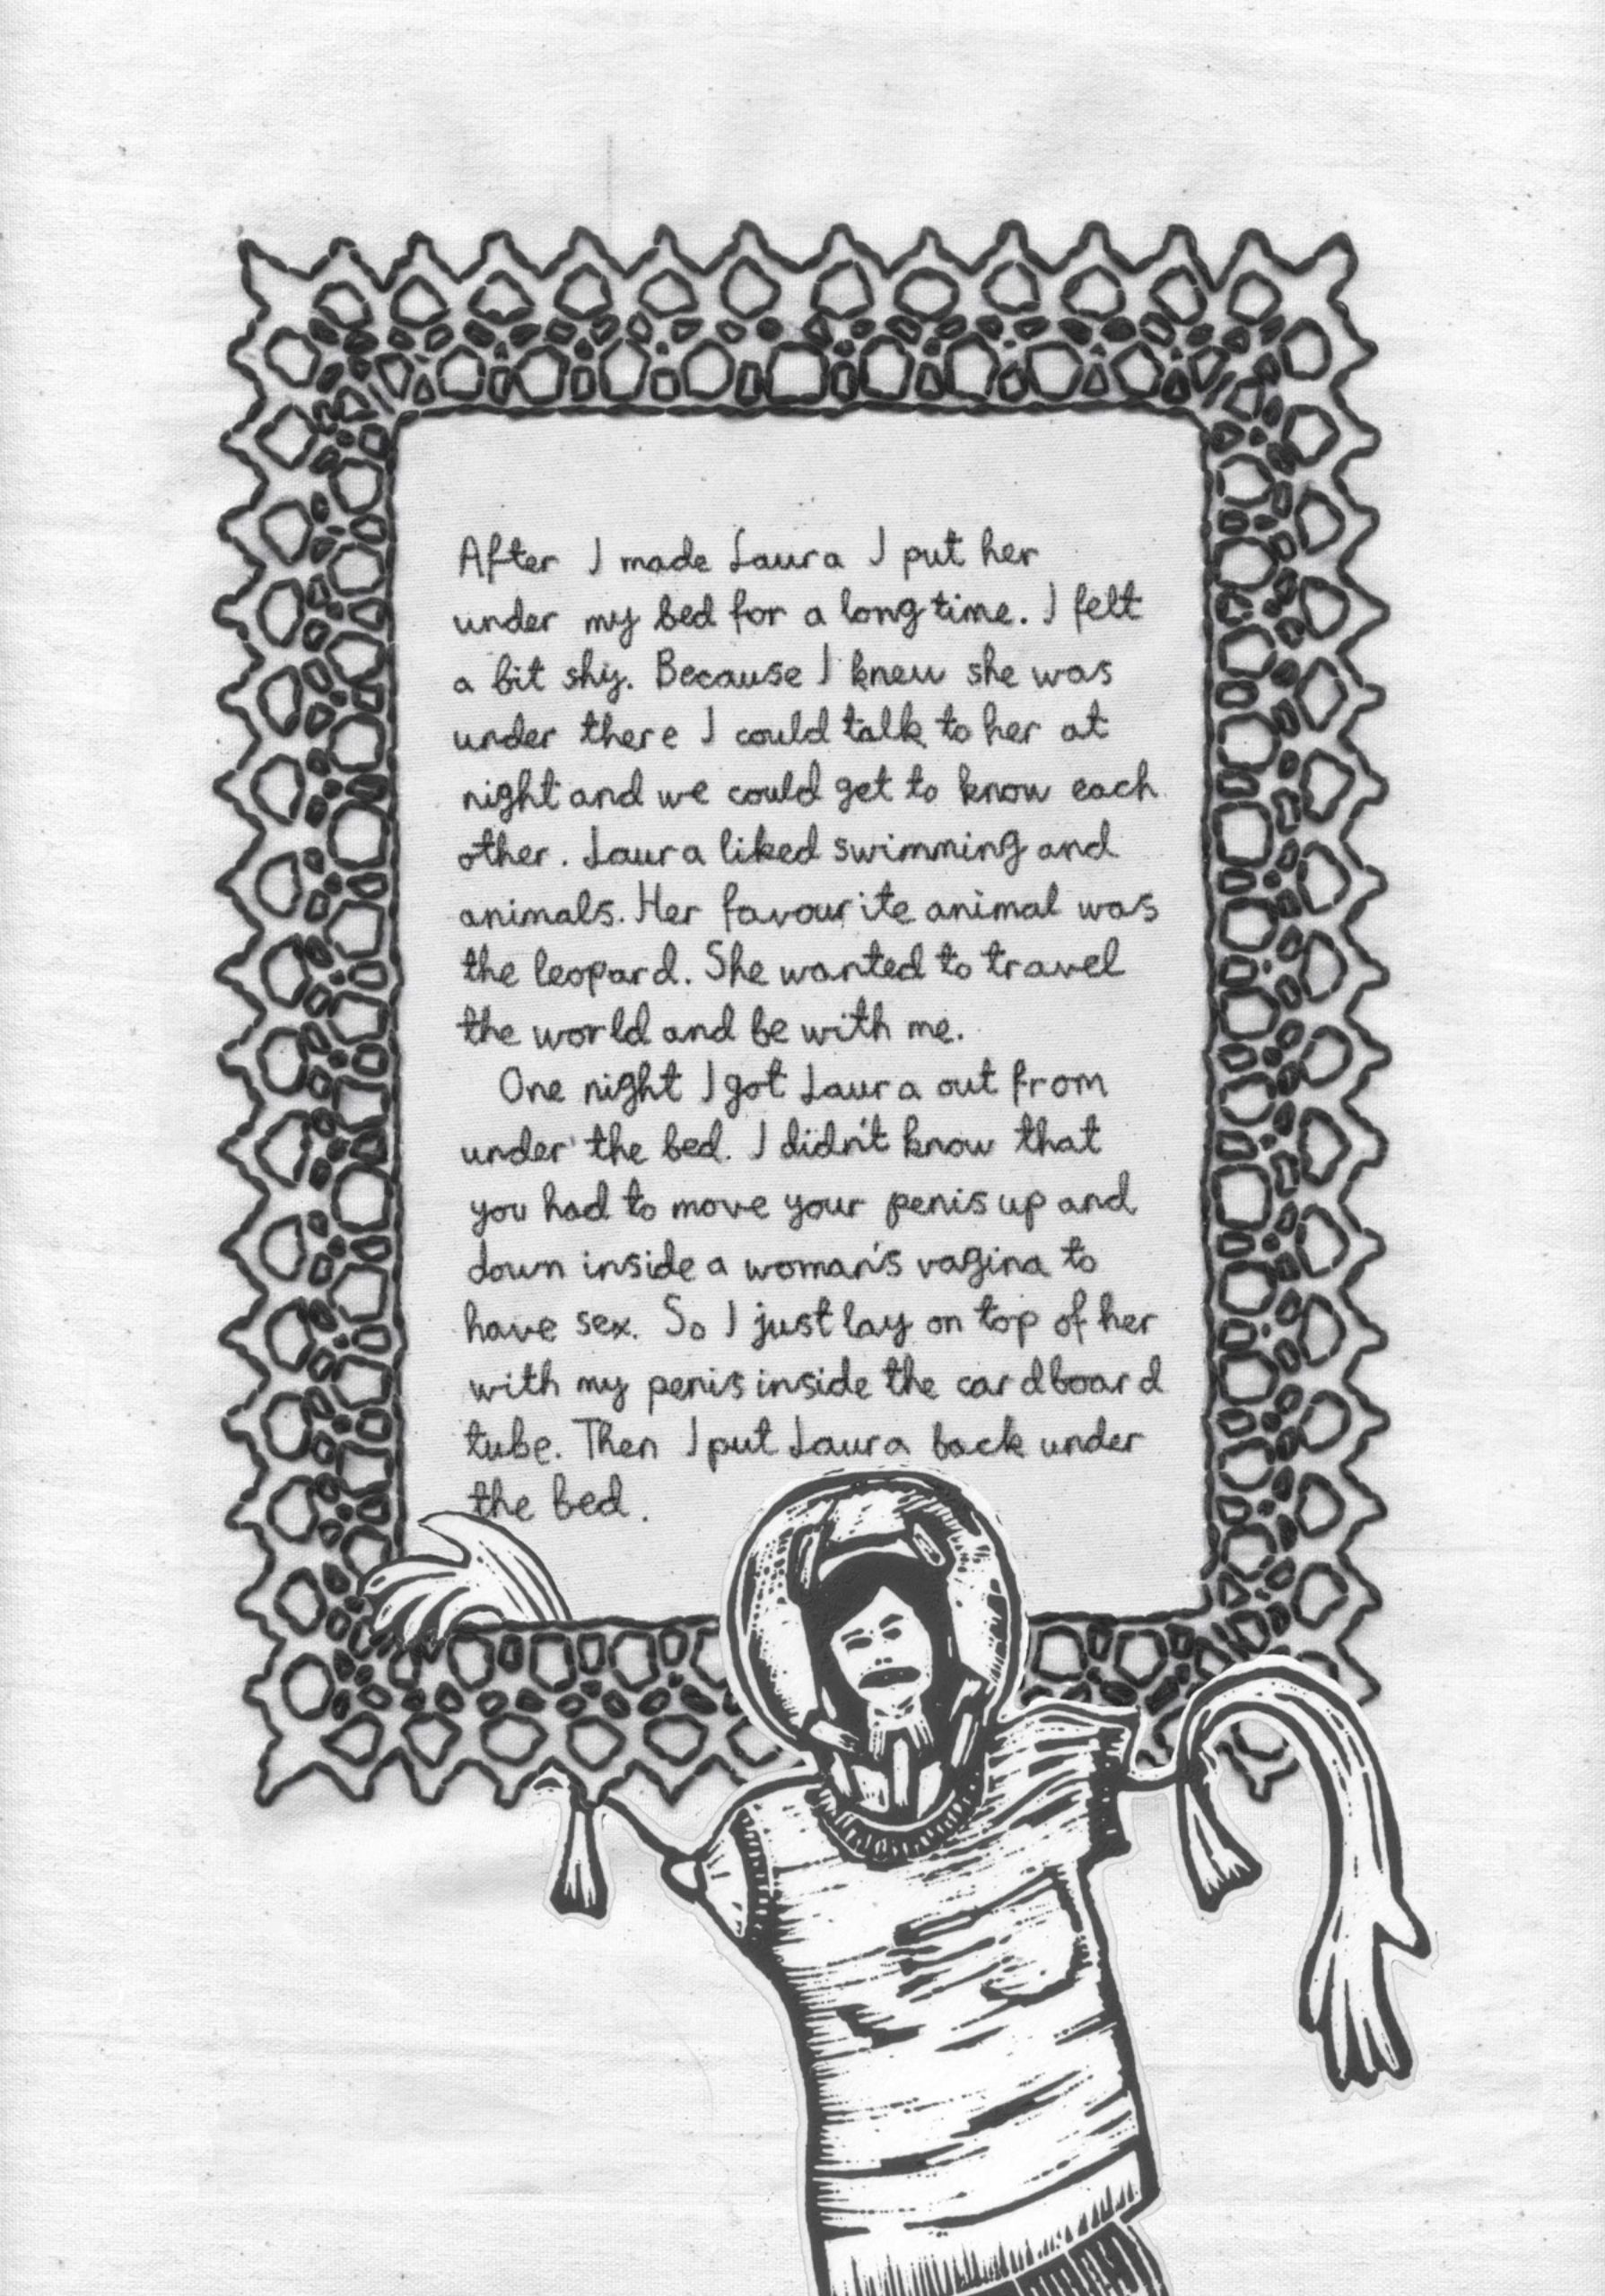 After I made Laura I put her
under my bed for a long time. I felt
a bit shy. Because I knew she was
under there I could talk to her at
night and we could get to know each
other. Laura liked swimming and
animals. Her favourite animal was
the leopard. She wanted to travel
the world and be with me.
One night I got Laura out from
under the bed. I didn't know that
you had to move your penis up and
down inside a woman's vagina to
have sex. So I just lay on top of her
with my penis inside the cardboard
tube. Then I put Laura back under
the bed.